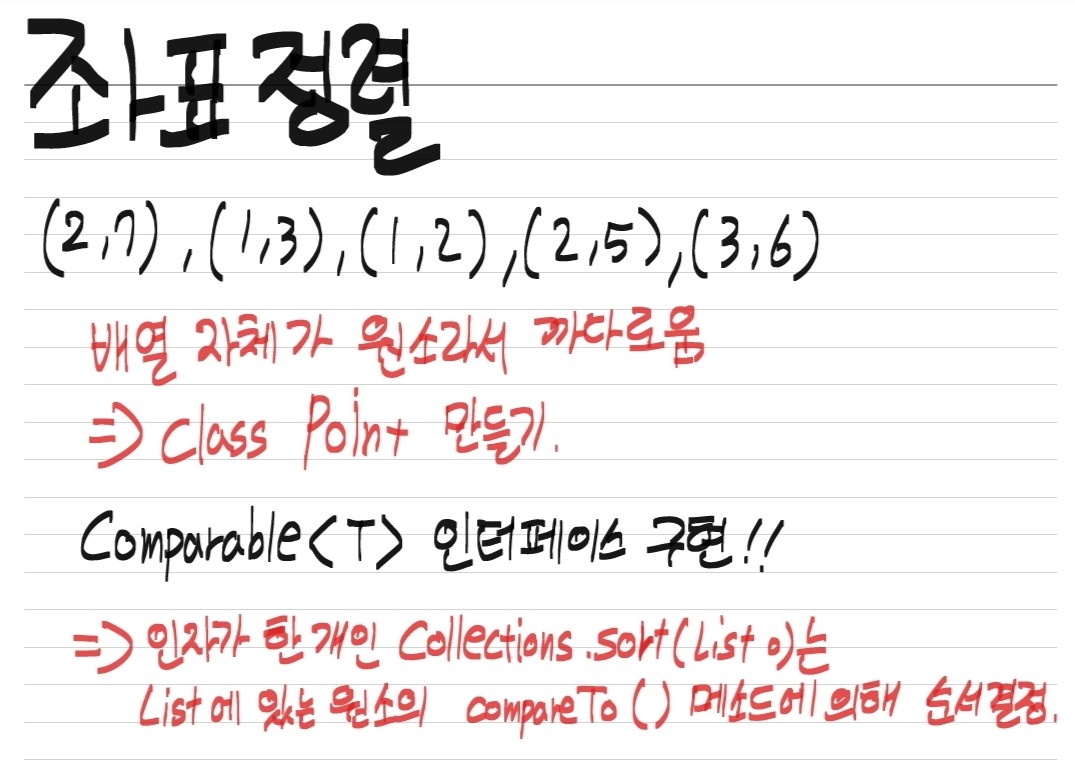 좌표정렬
(2,7),(1,3),(1,2),(2,5),(3,6)
배열 자체가 원소라서 까다로움
=> Class Point 만들기.
Comparable<T> 인터페이스 구현!!
=> 인자가 한개인 Collections.sort(List o)는
List에 있는 원소의 compareTo() 메소드에 의해 순서결정.